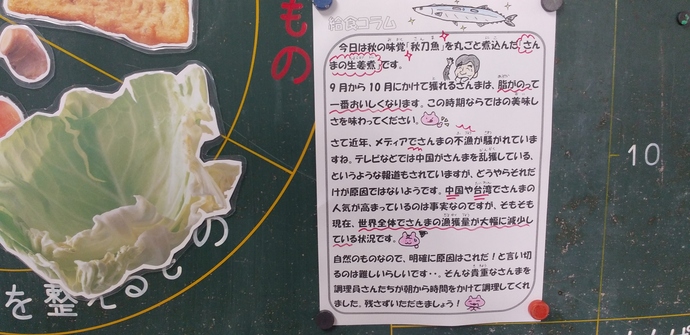 もの
を整えるもの
10
給食コラム
今日は秋の味覚「秋刀魚」を丸ごと煮込んだ「さん
まの生姜煮」です。
9月から10月にかけて獲れるさんまは、脂がのって
一番おいしくなります。この時期ならではの美味し
さを味わってください。
さて近年、メディアでさんまの不漁が騒がれていま
すね。テレビなどでは中国がさんまを乱獲している、
というような報道もされていますが、どうやらそれだ
けが原因ではないようです。中国や台湾でさんまの
人気が高まっているのは事実なのですが、そもそも
現在、世界全体でさんまの漁獲量が大幅に減少し
ている状況です。
自然のものなので、明確に原因はこれだ！と言い切
るのは難しいらしいです・・。そんな貴重なさんまを
調理員さんたちが朝から時間をかけて調理してくれ
ました。残さずいただきましょう！